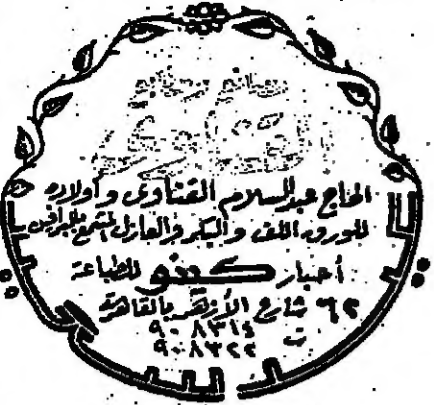 الحاج عبدالسلام القناوى وأولاده
للورق اللف والبكر والعازل المشمع للجرافين
أحبار كنتو للطباعة
٦٢ شارع الأزهر بالقاهرة
ت ٩٠٨٣١٤
٩٠٨٣٢٢